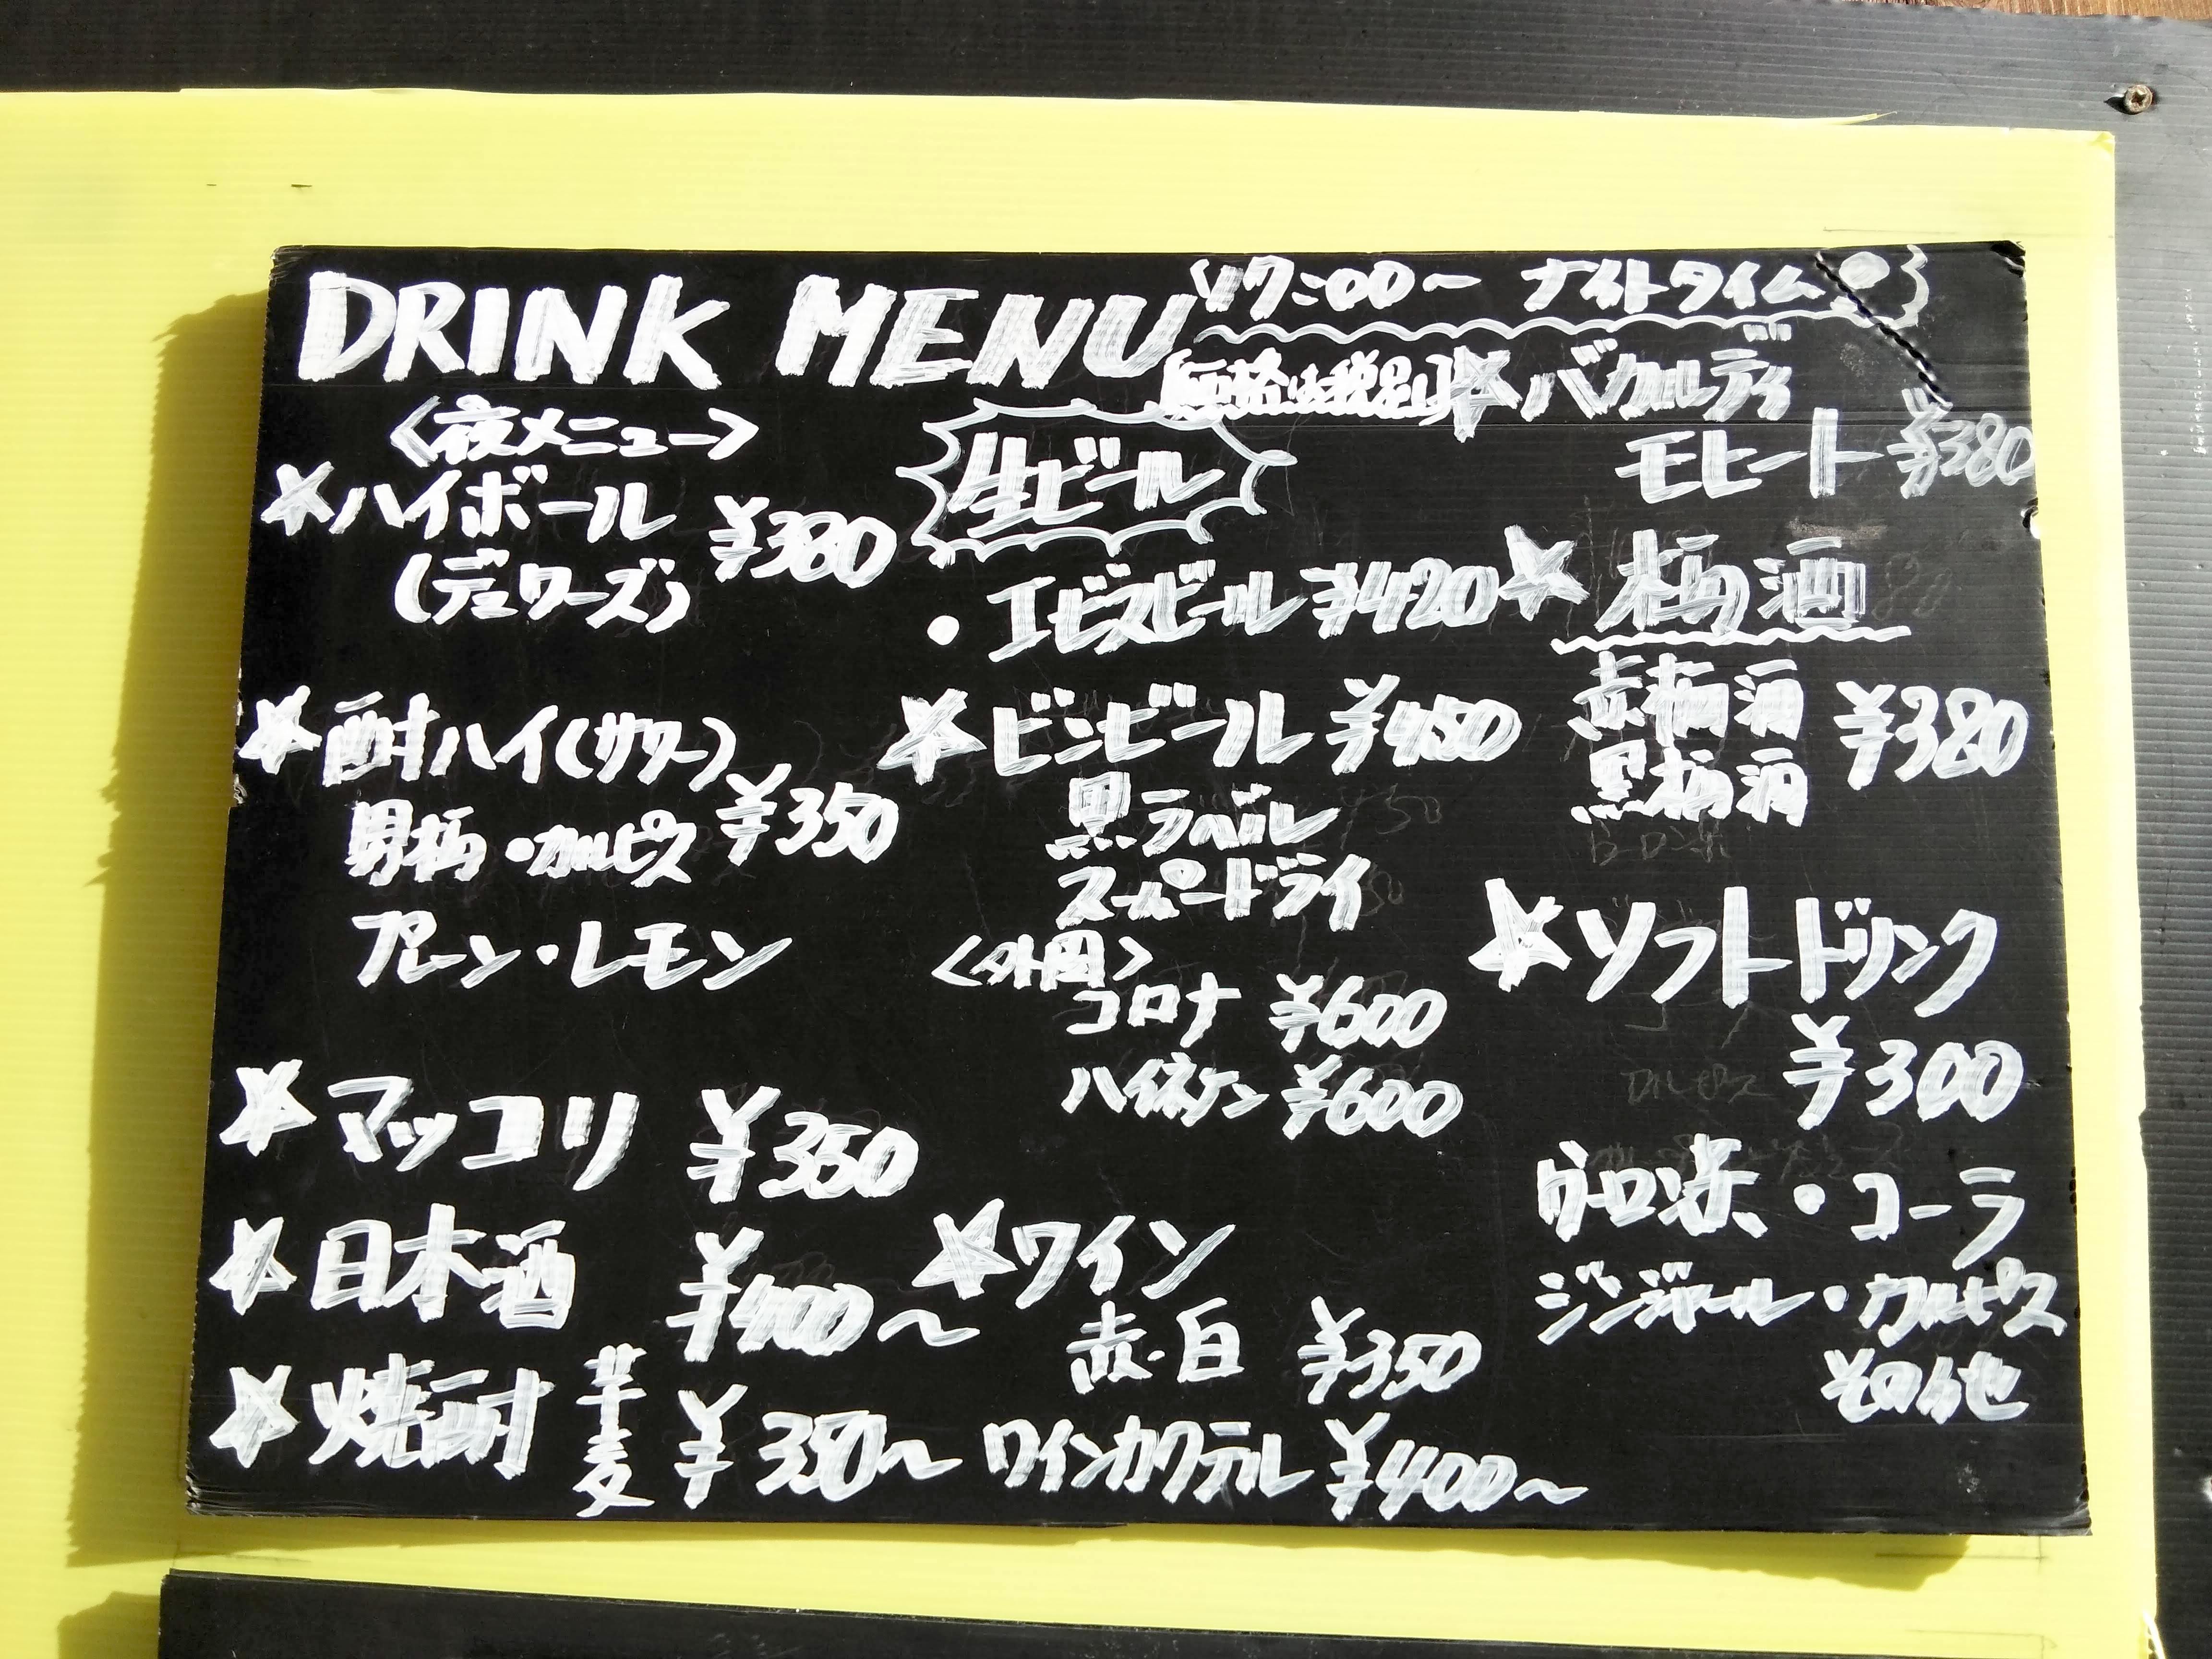 DRINK MENU
17:00〜 ナイトタイム
[価格は税別]
〈夜メニュー〉
☆ハイボール
(デュワーズ) ¥380
☆酎ハイ(サワー)
¥350
男梅・カルピス
プレーン・レモン
☆マッコリ ¥350
☆日本酒 ¥400〜
☆焼酎 芋 麦 ¥350〜
生ビール
・エビスビール ¥420
☆ビンビール ¥450
黒ラベル
スーパードライ
〈外国〉
コロナ ¥600
ハイネケン ¥600
☆ワイン
赤・白 ¥350
ワインカクテル ¥400〜
☆バカルディ
モヒート ¥380
☆梅酒
赤梅酒
黒梅酒
¥380
☆ソフトドリンク
¥300
ウーロン茶・コーラ
ジンジャール・カルピス
その他